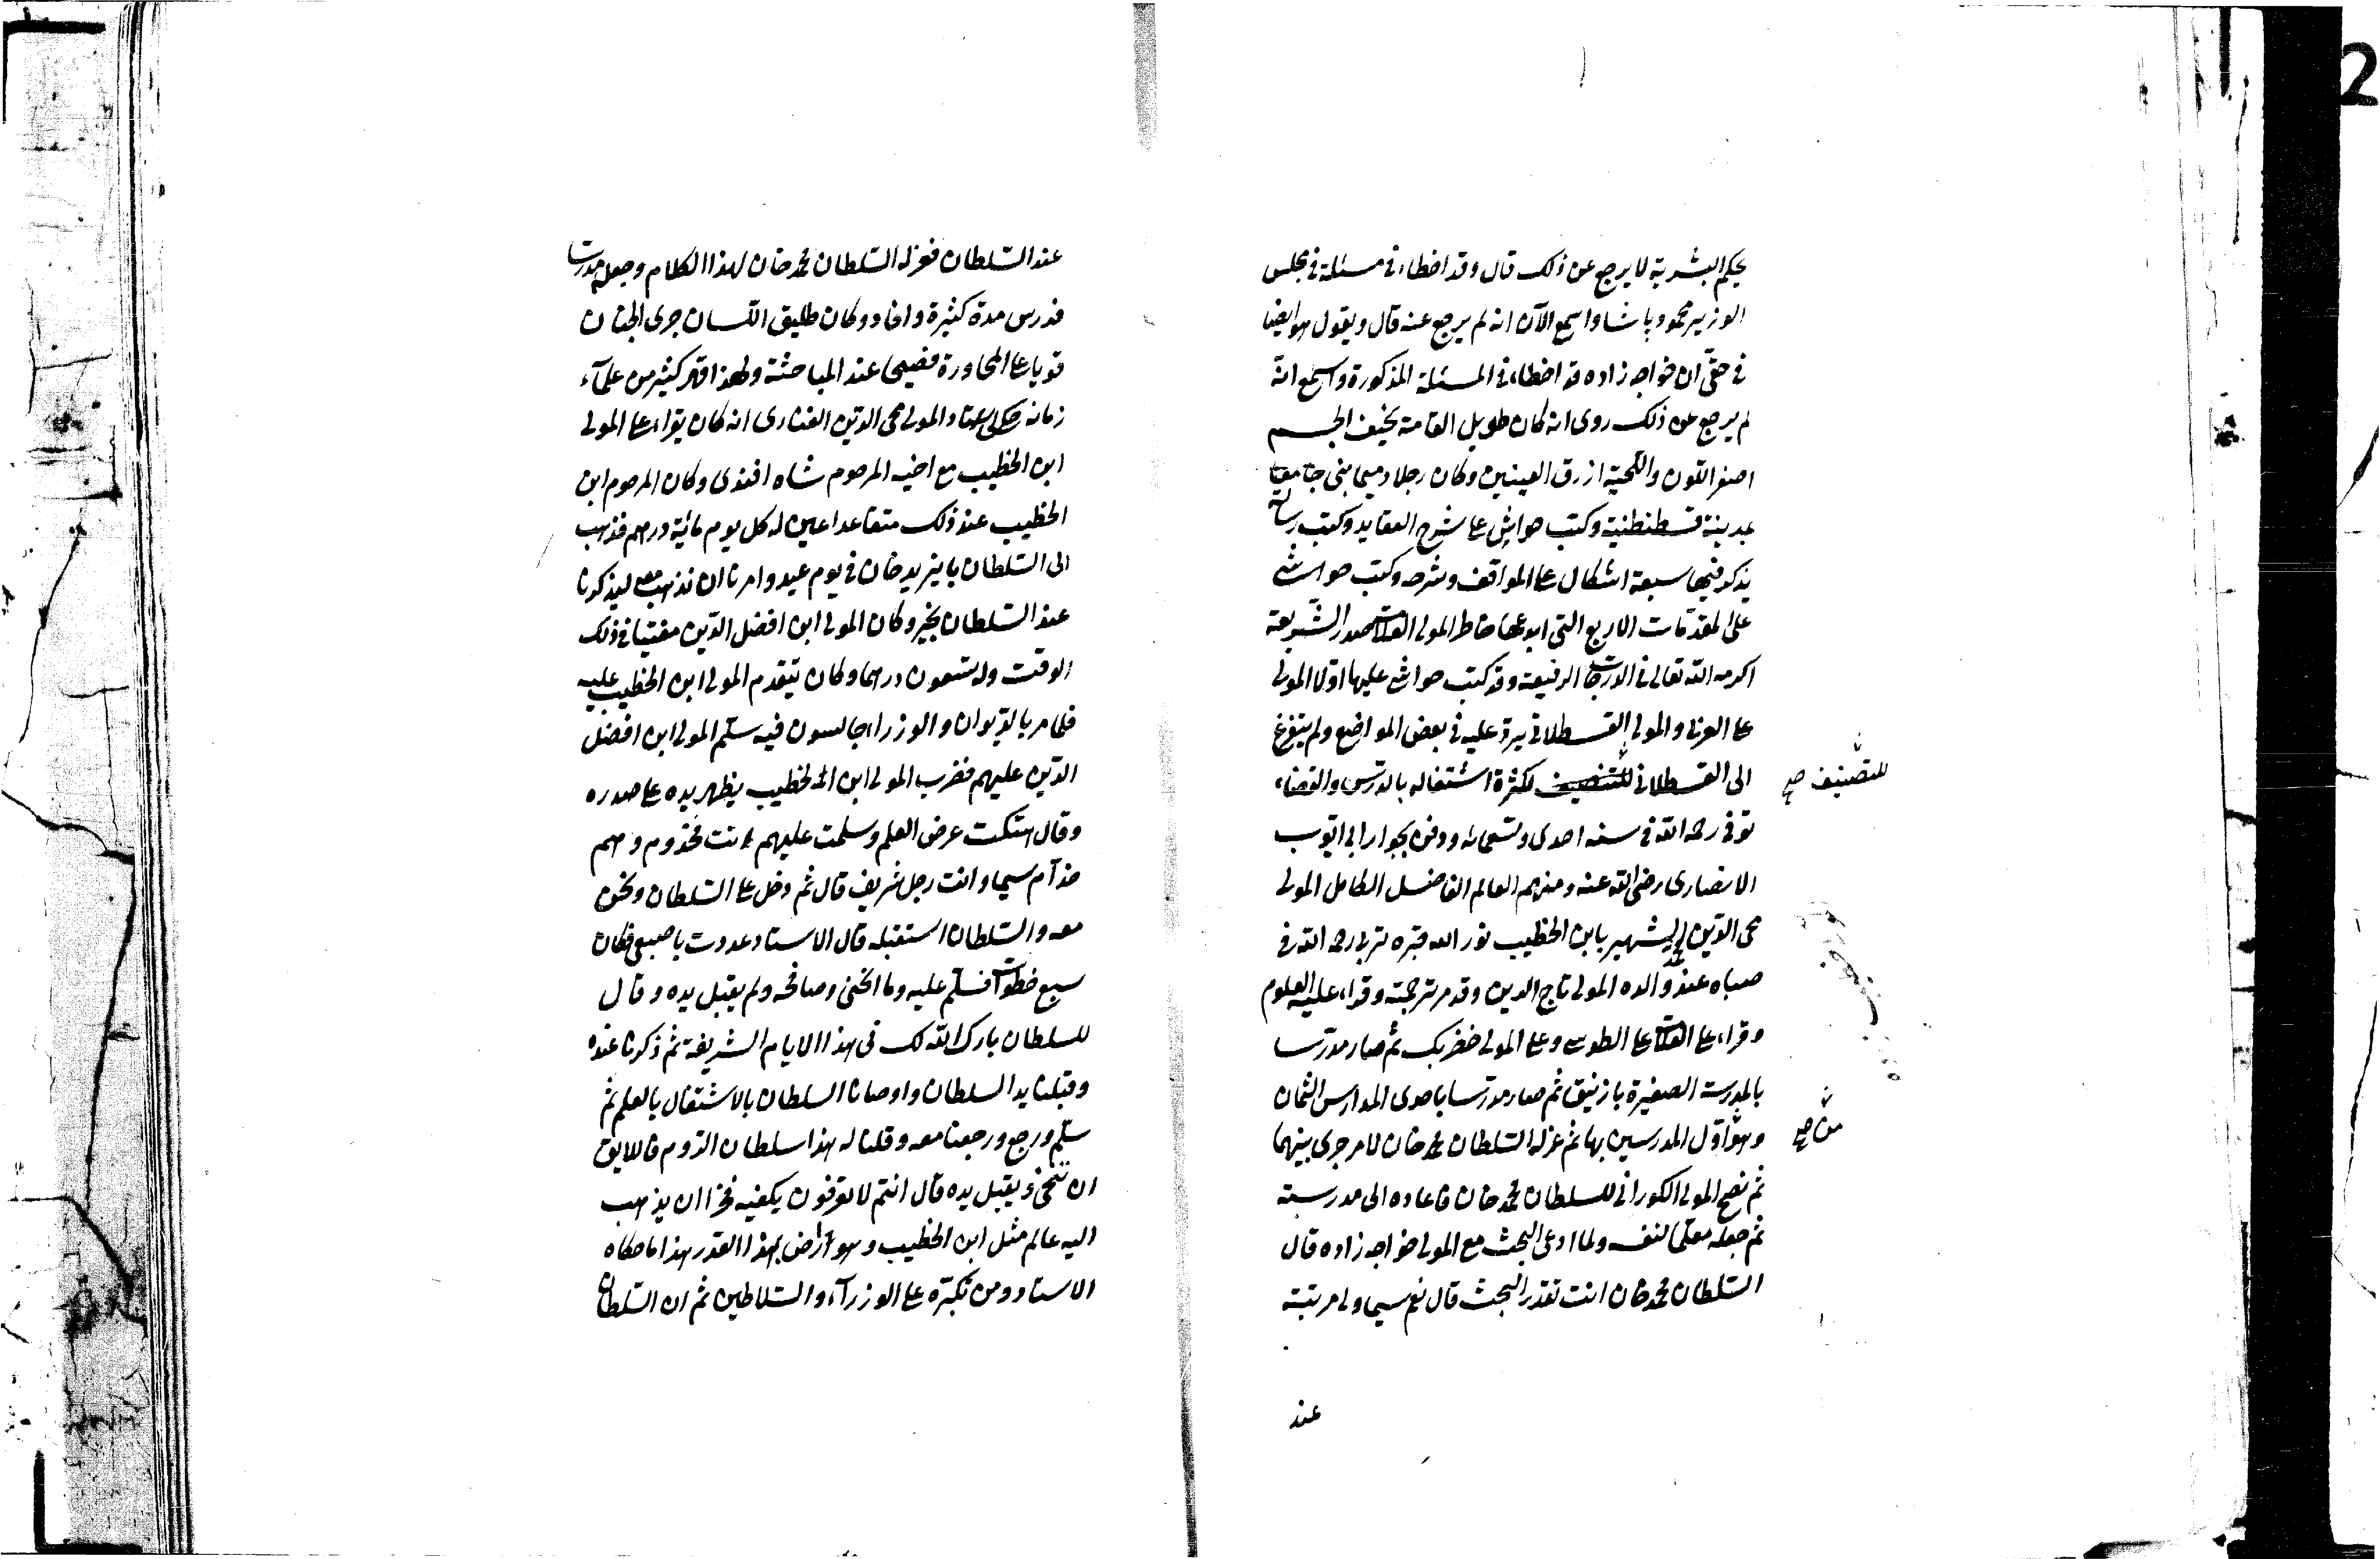 بحكم البشرية لا يرجع عن ذلك قال وقد اخطاء في مسئلة في مجلس
الوزير محمود باشا واسمع الآن انه لم يرجع عنه قال ويقول هو ايضا
في حقى ان خواجه زاده قد اخطاء في المسئلة المذكورة واسمع انه
لم يرجع عن ذلك روى انه كان طويل القامة نحيف الجسم
اصفر اللون واللحية ازرق العينين وكان رجلا دميما بنى جامعا
بمدينة قسطنطنية وكتب حواشى على شرح العقايد وكتب رسالة
يذكر فيها سبعة اشكال على المواقف وشرحه وكتب حواشى
على المقدمات الاربع التى ابدعها خاطر المولى العلامة صدر الشريعة
اكرمه الله تعالى فى الدرجات الرفيعة وقد كتب حواشى عليها اولا المولى
على العربى والمولى القسطلانى يرد عليه فى بعض المواضع ولم يتفرغ
الى القسطلانى للتصنيف لكثرة اشتغاله بالدرس والقضاء
للتصنيف صح
توفى رحمه الله فى سنه احدى وتسعمائه ودفن بجوار ابى ايوب
الانصارى رضى الله عنه ومنهم العالم الفاضل الكامل المولى
محى الدين محمد الشهير بابن الخطيب نور الله قبره تربى رحمه الله فى
صباه عند والده المولى تاج الدين وقد مر ترجمته وقراء عليه العلوم
وقراء على العلامة على الطوسى وعلى المولى خضر بك ثم صار مدرسا
بالمدرسة الصغيرة بازنيق ثم صار مدرسا باحدى المدارس الثمان
وهو اول المدرسين بها ثم عزله السلطان محمد خان لامر جرى بينهما
من صح
ثم نصح المولى الكورانى للسلطان محمد خان فاعاده الى مدرسته
ثم جعله معلما لنفسه ولما ادعى البحث مع المولى خواجه زاده قال
السلطان محمد خان انت تقدر البحث قال نعم سيما ولى مرتبة
عند
عند السلطان فعزله السلطان محمد خان لهذا الكلام وجعله مدرسا
فدرس مدة كثيرة وافاد وكان طليق اللسان جرى الجنان
قويا على المحاورة فصيحا عند المباحثة ولهذا قهر كثير من علماء
زمانه حكى استاد المولى محى الدين الفنارى انه كان يقراء على المولى
ابن الخطيب مع اخيه المرحوم شاه افندى وكان المرحوم ابن
الخطيب عند ذلك متقاعدا عين له كل يوم مائية درهم فذهب
الى السلطان بايزيد خان فى يوم عيد وامرنا ان نذهب معه ليذكرنا
عند السلطان بخير وكان المولى ابن افضل الدين مفتيا فى ذلك
الوقت وله تسعون درهما وكان يتقدم المولى ابن الخطيب عليه
فلما مر بالديوان والوزراء جالسون فيه سلم المولى ابن افضل
الدين عليهم فضرب المولى ابن الخطيب بظهر يده على صدره
وقال هتكت عرض العلم وسلمت عليهم انت مخدوم وهم
خدام سيما وانت رجل شريف قال ثم دخل على السلطان ونحن
معه والسلطان استقبله قال الاستاد عددت باصبعى فكان
سبع خطوات فسلم عليه وما انحنى وصافحه ولم يقبل يده وقال
للسلطان بارك الله لك فى هذا الايام الشريفة ثم ذكرنا عنده
وقبلنا يد السلطان واوصانا السلطان بالاشتغال بالعلم ثم
سلم ورجع ورجعنا معه وقلنا له هذا سلطان الروم فاللايق
ان تنحنى ويقبل يده قال انتم لا تعرفون يكفيه فخرا ان يذهب
اليه عالم مثل ابن الخطيب وهو راض بهذا القدر هذا ما حكاه
الاستاد ومن تكبره على الوزراء والسلاطين ثم ان السلطان